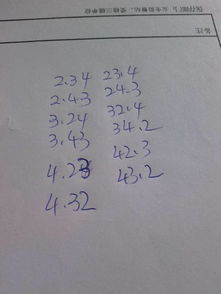 备注
2.34 23.4
2.43 24.3
3.24 32.4
3.43 34.2
4.23 42.3
4.32 43.2